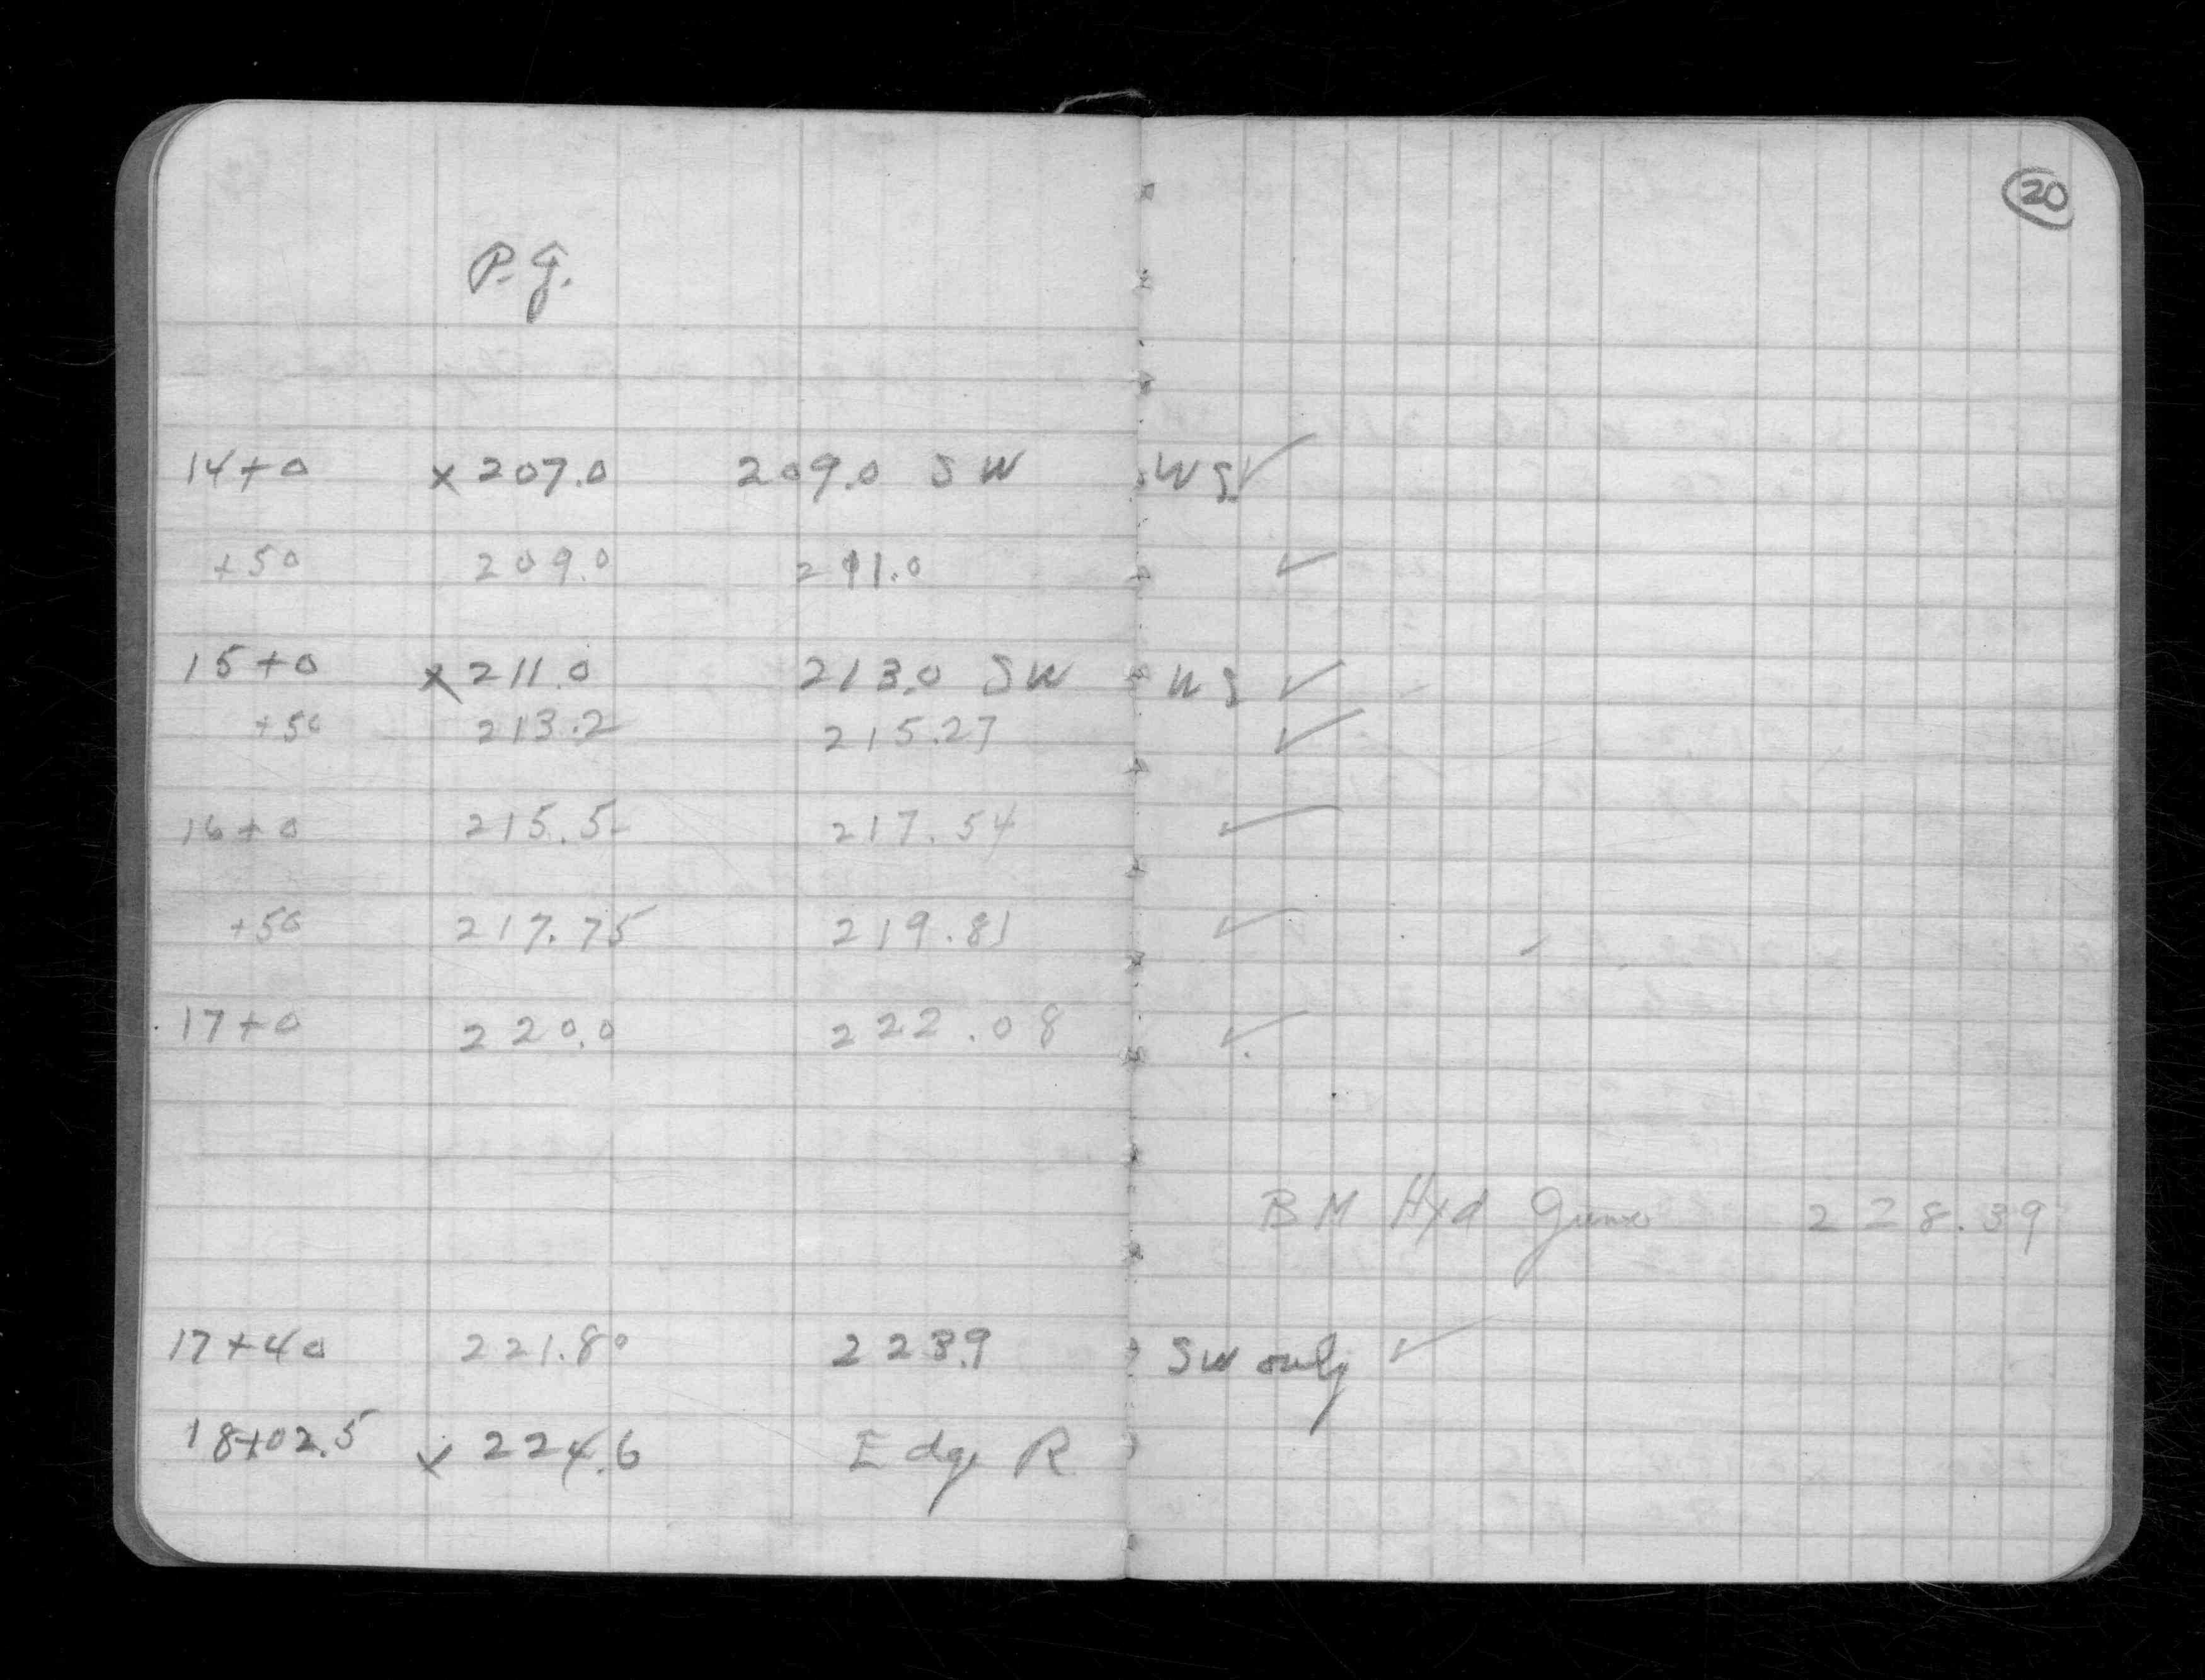 20
P.G.
14+0 x 207.0 209.0 SW WS ✓
+50 209.0 211.0 ✓
15+0 x 211.0 213.0 SW WS ✓
+50 213.2 215.27 ✓
16+0 215.5 217.54 ✓
+50 217.75 219.81 ✓
17+0 220.0 222.08 ✓
BM Hyd 228.39
17+40 221.80 223.9 SW only ✓
18+02.5 x 224.6 Edge R